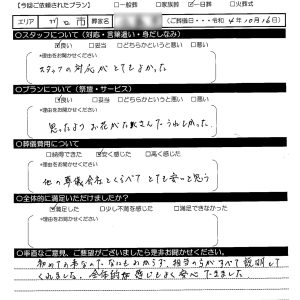 【今回ご依頼されたプラン】 □一般葬 □家族葬 ☑一日葬 □火葬式
エリア 川口 市 葬家名 (ご葬儀日・・・令和 4年10月16日)
○スタッフについて（対応・言葉遣い・身だしなみ）
☑良い □妥当 □どちらかというと悪い □悪い
*理由をお聞かせください
スタッフの対応がとてもよかった
○プランについて（祭壇・サービス）
☑良い □妥当 □どちらかというと悪い □悪い
*理由をお聞かせください
思ったよりお花がたくさんでうれしかった
○葬儀費用について
□納得できた ☑安く感じた □高く感じた
*理由をお聞かせください
他の葬儀会社とくらべてとても安いと思う
○全体的に満足いただけましたか?
☑満足した □少し不満を感じた □満足できなかった
*理由をお聞かせください
○率直なご意見、ご要望がございましたら是非お聞かせください。
初めての事なので、なにもわからず、担当の方がすべて説明して
くれました。全体的な感じもよく安心できました